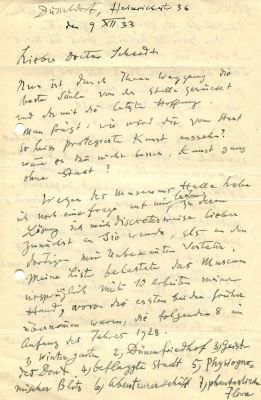 Düsseldorf, Heinrichstr 36
den 9 XII 33
Lieber Doctor Schardt
Nun ist durch Ihren Weggang die
beste Säule von der Stelle gerückt
und damit die letzte Hoffnung.
Man frägt: wie wird die vom Staat
so heiss protegierte Kunst aussehn?
wäre es da nicht besser, Kunst ganz
ohne Staat?
Wegen des Museums Halle habe
ich noch eine Frage, mit deren
Lösung ich mich discreterweise lieber
zunächst an Sie wende, als an den
dortigen mir unbekannten Vertreter.
Meine Liste belastete das Museum
ursprünglich mit 10 Arbeiten meiner
Hand, wovon die ersten beiden früher
übernommen waren, die folgenden 8 im
Anfang des Jahres 1928.
1, Wintergarten 2, Dünenfriedhof 3, Geist
des Don 4, beflaggte Stadt 5, Physiogno-
mischer Blitz 6, Abenteurerschiff 7, phantastische
Flora